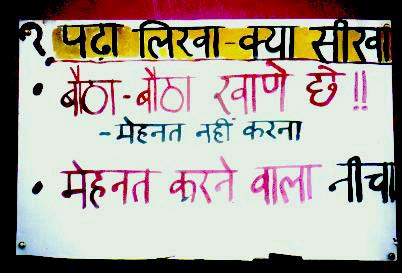 १. पढ़ा लिखा-क्या सीखा
• बैठा-बैठा खाणे छे !!
-मेहनत नहीं करना
• मेहनत करने वाला नीचा